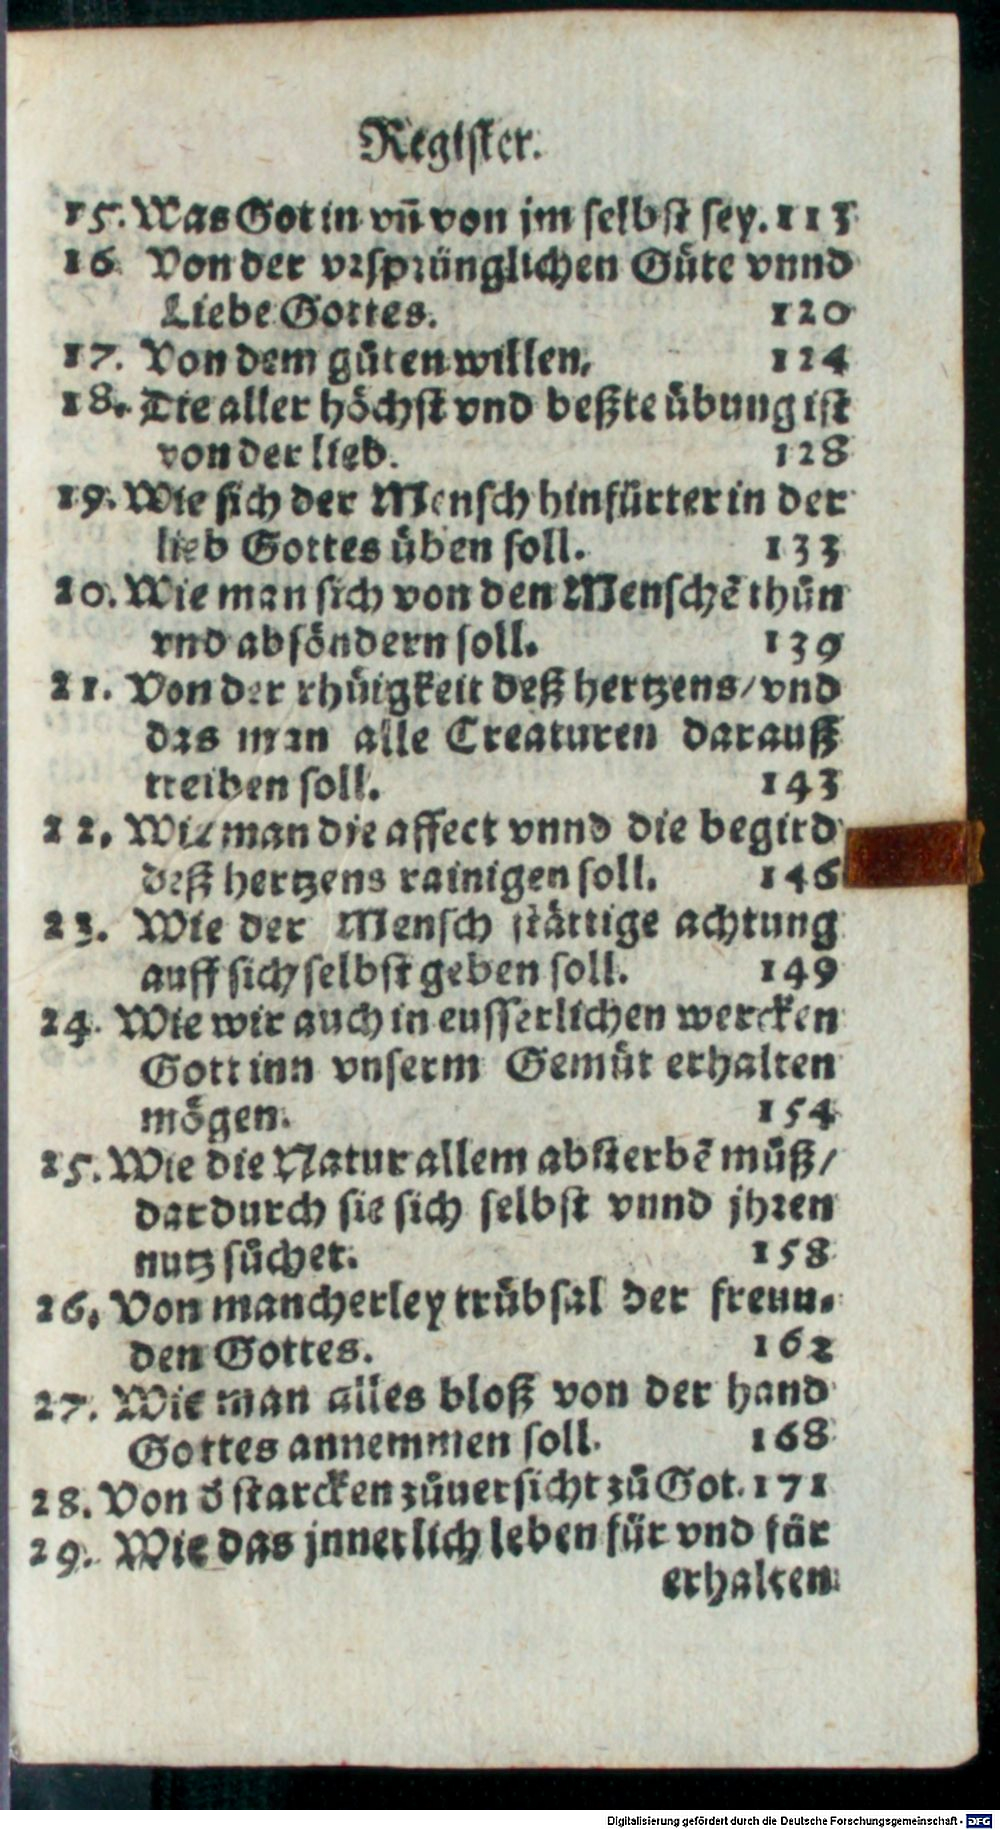 Register.
15. Was Got in vñ von jm selbst sey. 115
16 Von der vrsprünglichen Güte vnnd
Liebe Gottes. 120
17. Von dem gůten willen. 124
18. Die aller höchst vnd beßte übung ist
von der lieb. 128
19. Wie sich der Mensch hinfürter in der
lieb Gottes üben soll. 133
20. Wie man sich von den Menschẽ thůn
vnd absöndern soll. 139
21. Von der rhůigkeit deß hertzens/ vnd
das man alle Creaturen darauß
treiben soll. 143
22. Wie man die affect vnnd die begird
deß hertzens rainigen soll. 146
23. Wie der Mensch stättige achtung
auff sich selbst geben soll. 149
24. Wie wir auch in eusserlichen wercken
Gott inn vnserm Gemüt erhalten
mögen. 154
25. Wie die Natur allem absterbẽ můß/
dardurch sie sich selbst vnnd jhren
nutz sůchet. 158
26. Von mancherley trübsal der freun-
den Gottes. 162
27. Wie man alles bloß von der hand
Gottes annemmen soll. 168
28. Von ď starcken zůuersicht zů Got. 171
29. Wie das jnnerlich leben für vnd für
erhalten
Digitalisierung gefördert durch die Deutsche Forschungsgemeinschaft - DFG